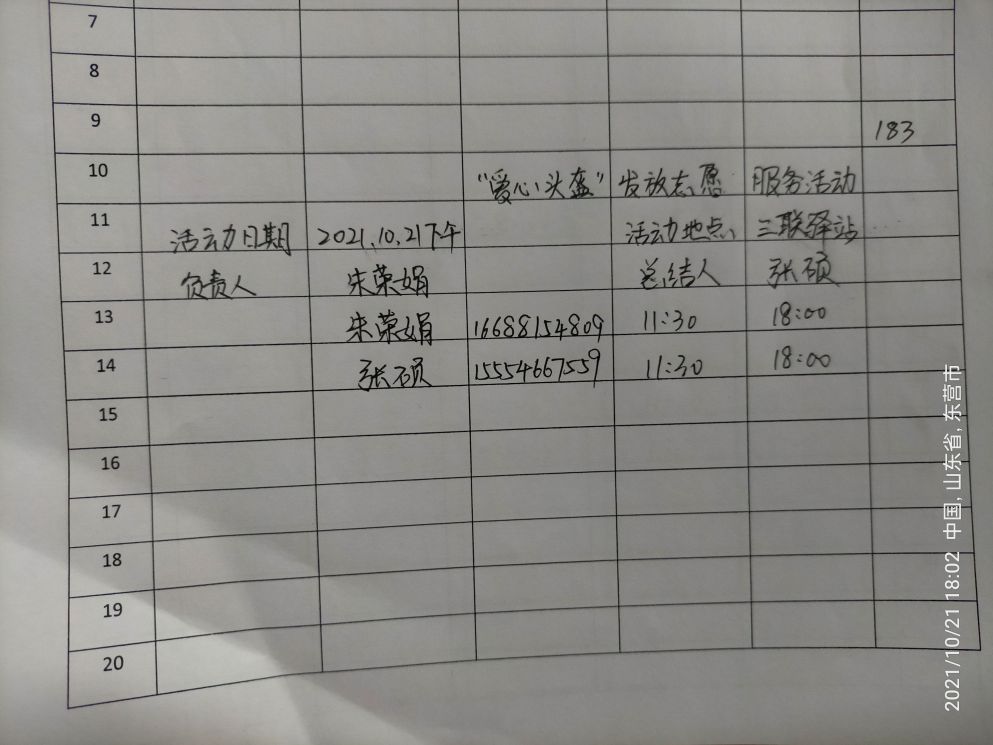 7
8
9 183
10 "爱心头盔"发放志愿服务活动
11 活动日期 2021.10.21下午 活动地点 三联驿站
12 负责人 朱荣娟 总结人 张硕
13 朱荣娟 16688154809 11:30 18:00
14 张硕 15554667559 11:30 18:00
15
16
17
18
19
20
2021/10/21 18:02 中国, 山东省, 东营市